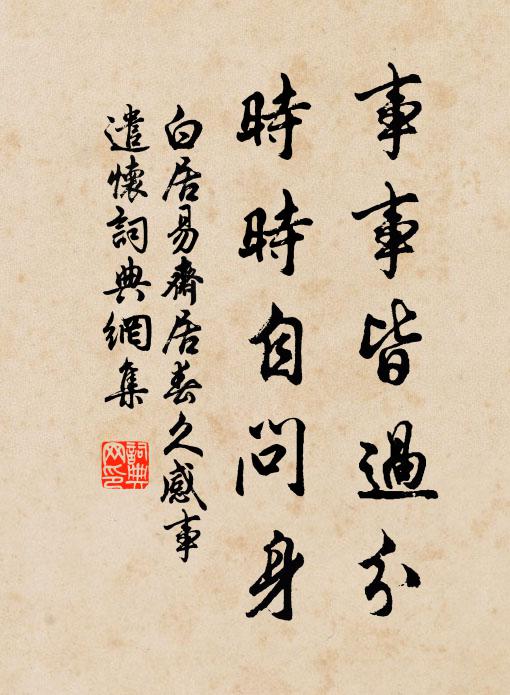 事事皆過分
時時自問身
白居易齋居春久感事
遣懷詞典網集
詞典網印